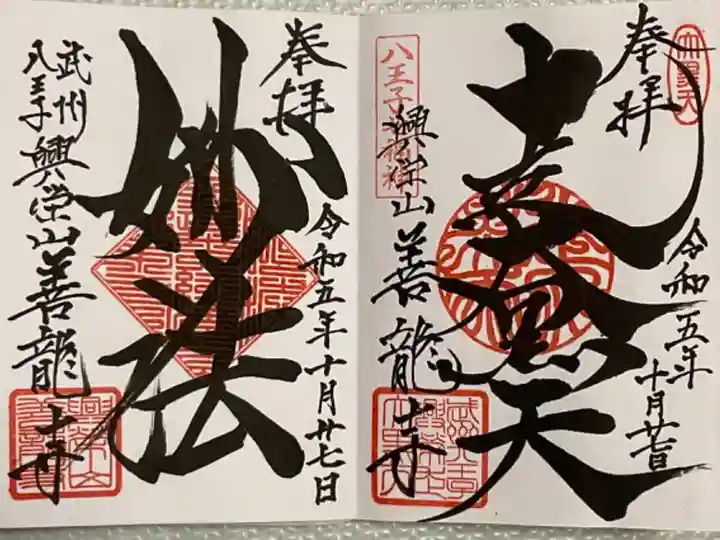 大黒天
奉拝
令和五年
十月廿七日
走大黒天
八王子七福神
興栄山善龍寺
奉拝
令和五年十月廿七日
妙法
武州
八王子
興栄山善龍寺